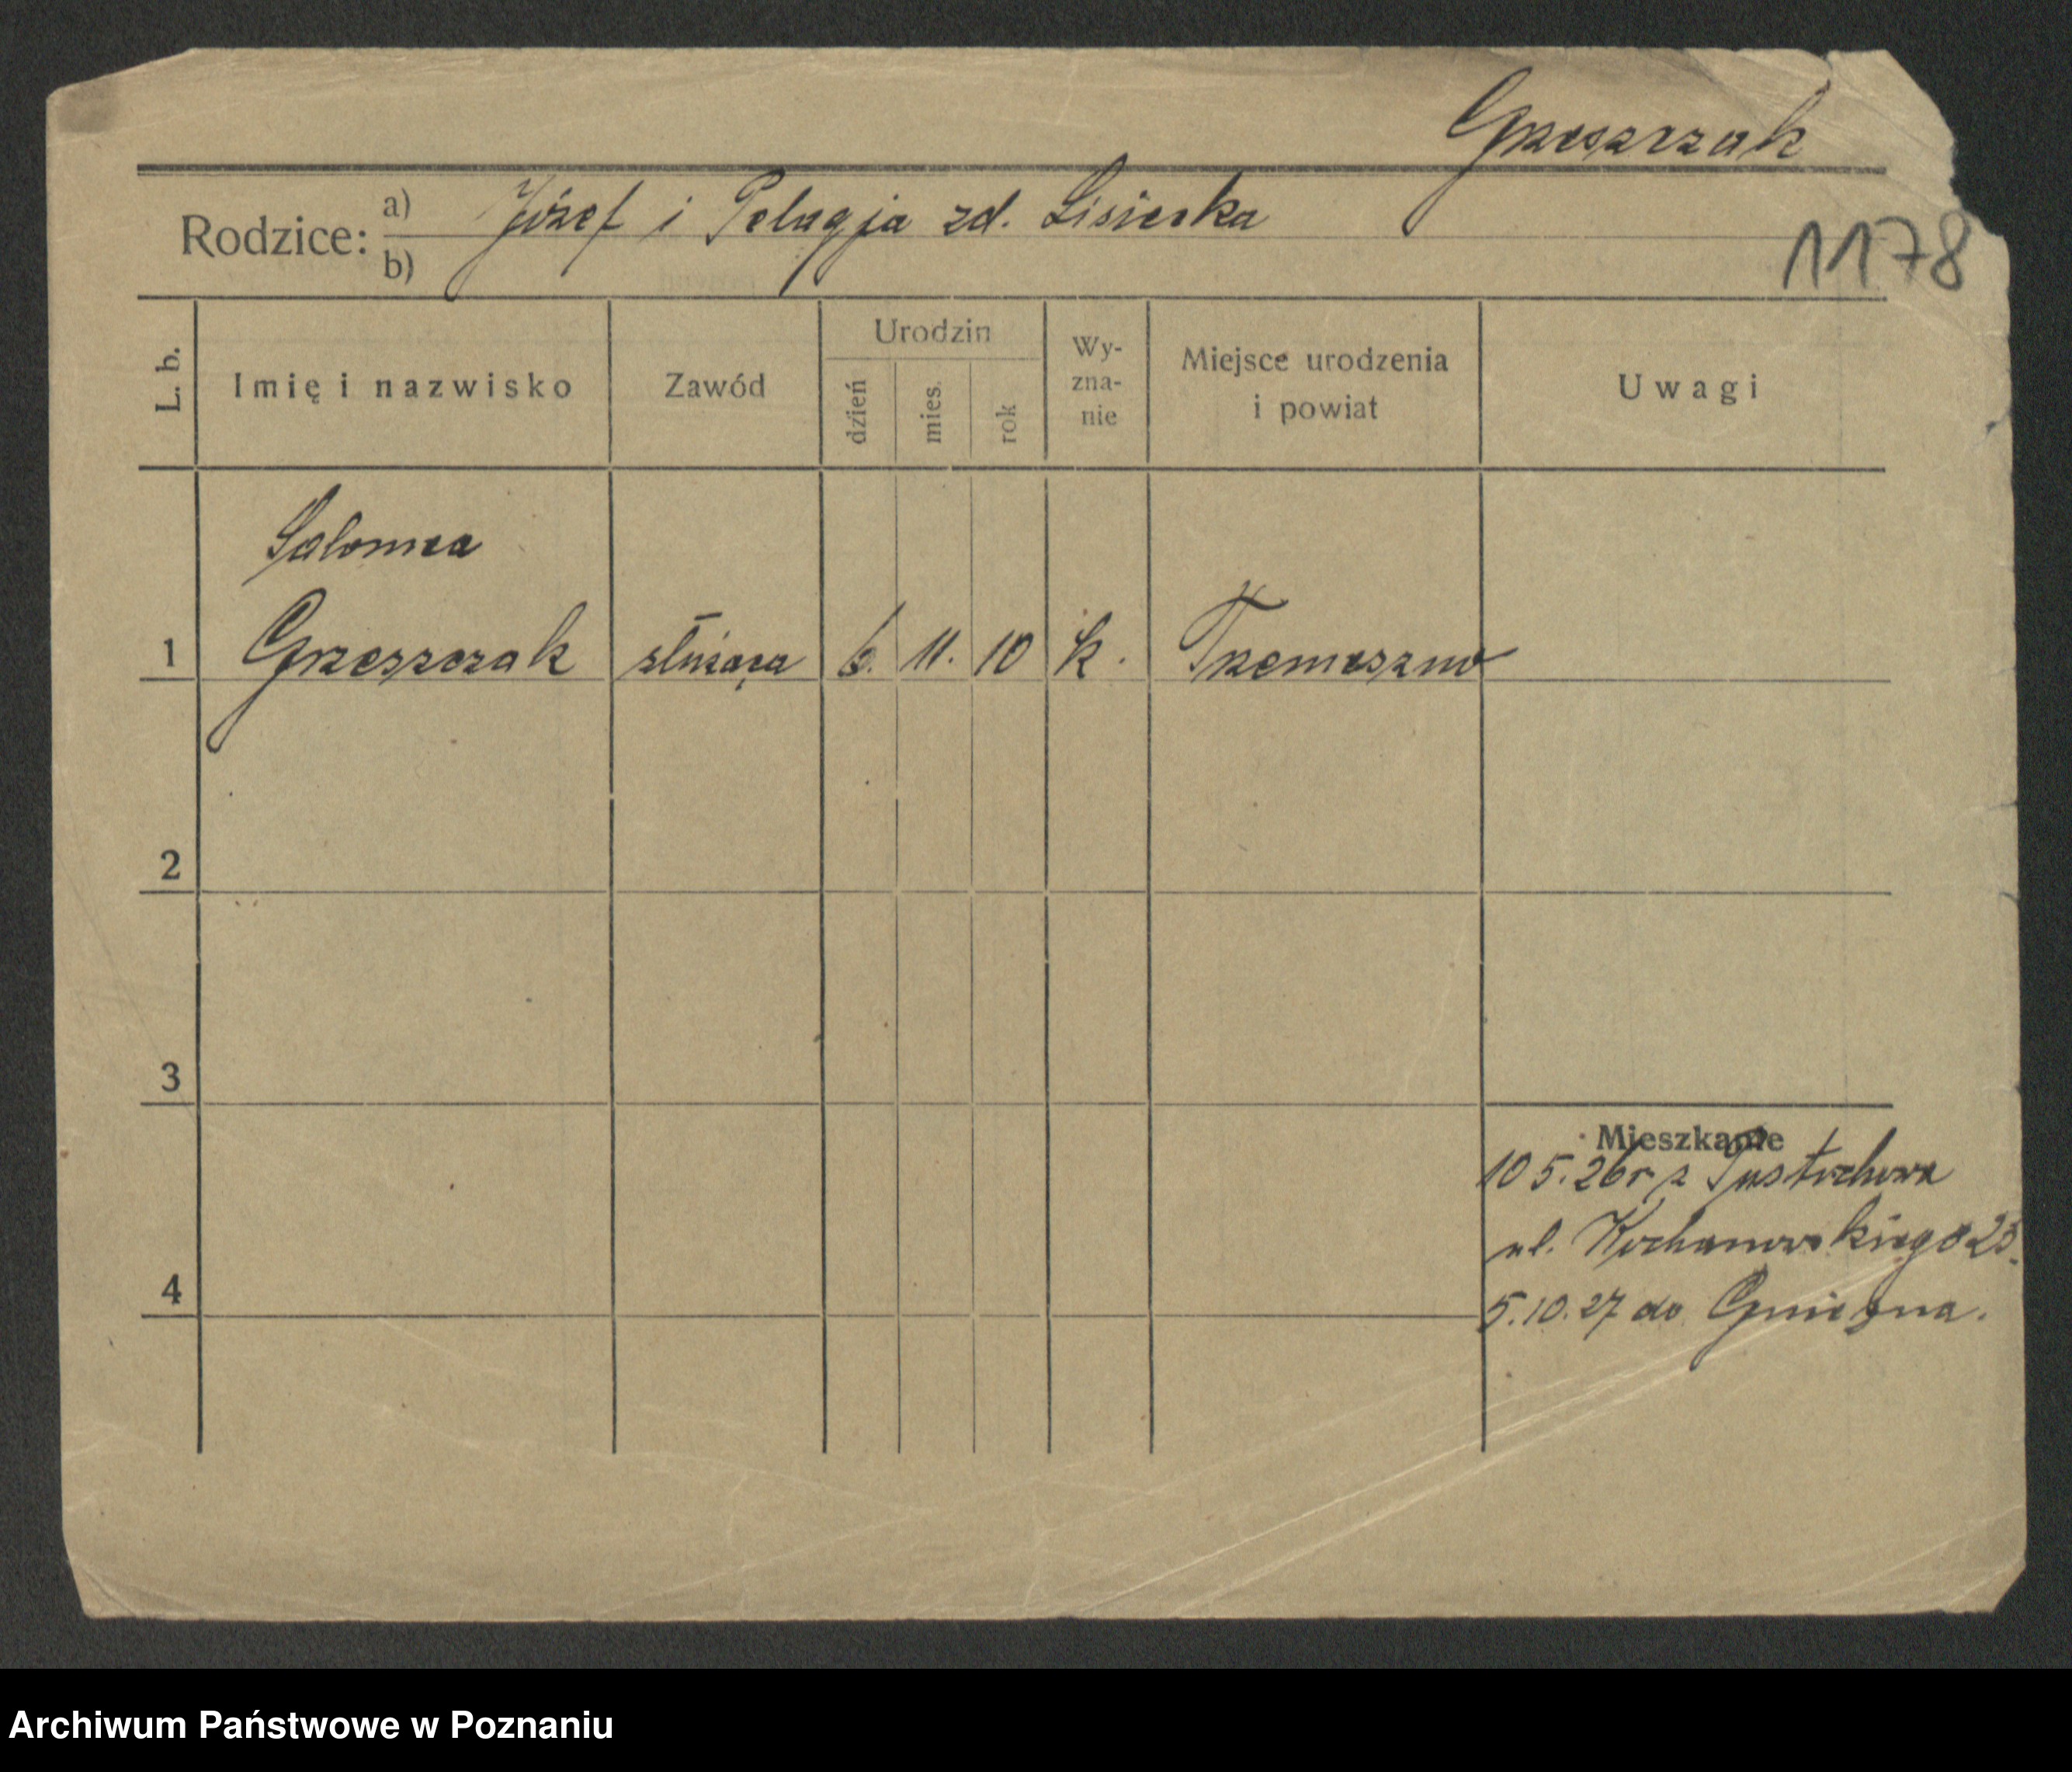 Grzeszczak
Rodzice: a) Józef i Pelagja zd. Lisiecka
b)
1178
L. b.
Imię i nazwisko
Zawód
Urodzin
dzień
mies.
rok
Wy-
zna-
nie
Miejsce urodzenia
i powiat
Uwagi
Salomea
1 Grzeszczak służąca 6. 11. 10 k. Trzemeszno
2
3
Mieszkanie
10 5. 26 r z Pustachowa
ul. Kochanowskiego 23.
4
5.10.27 do Gniezna.
Archiwum Państwowe w Poznaniu